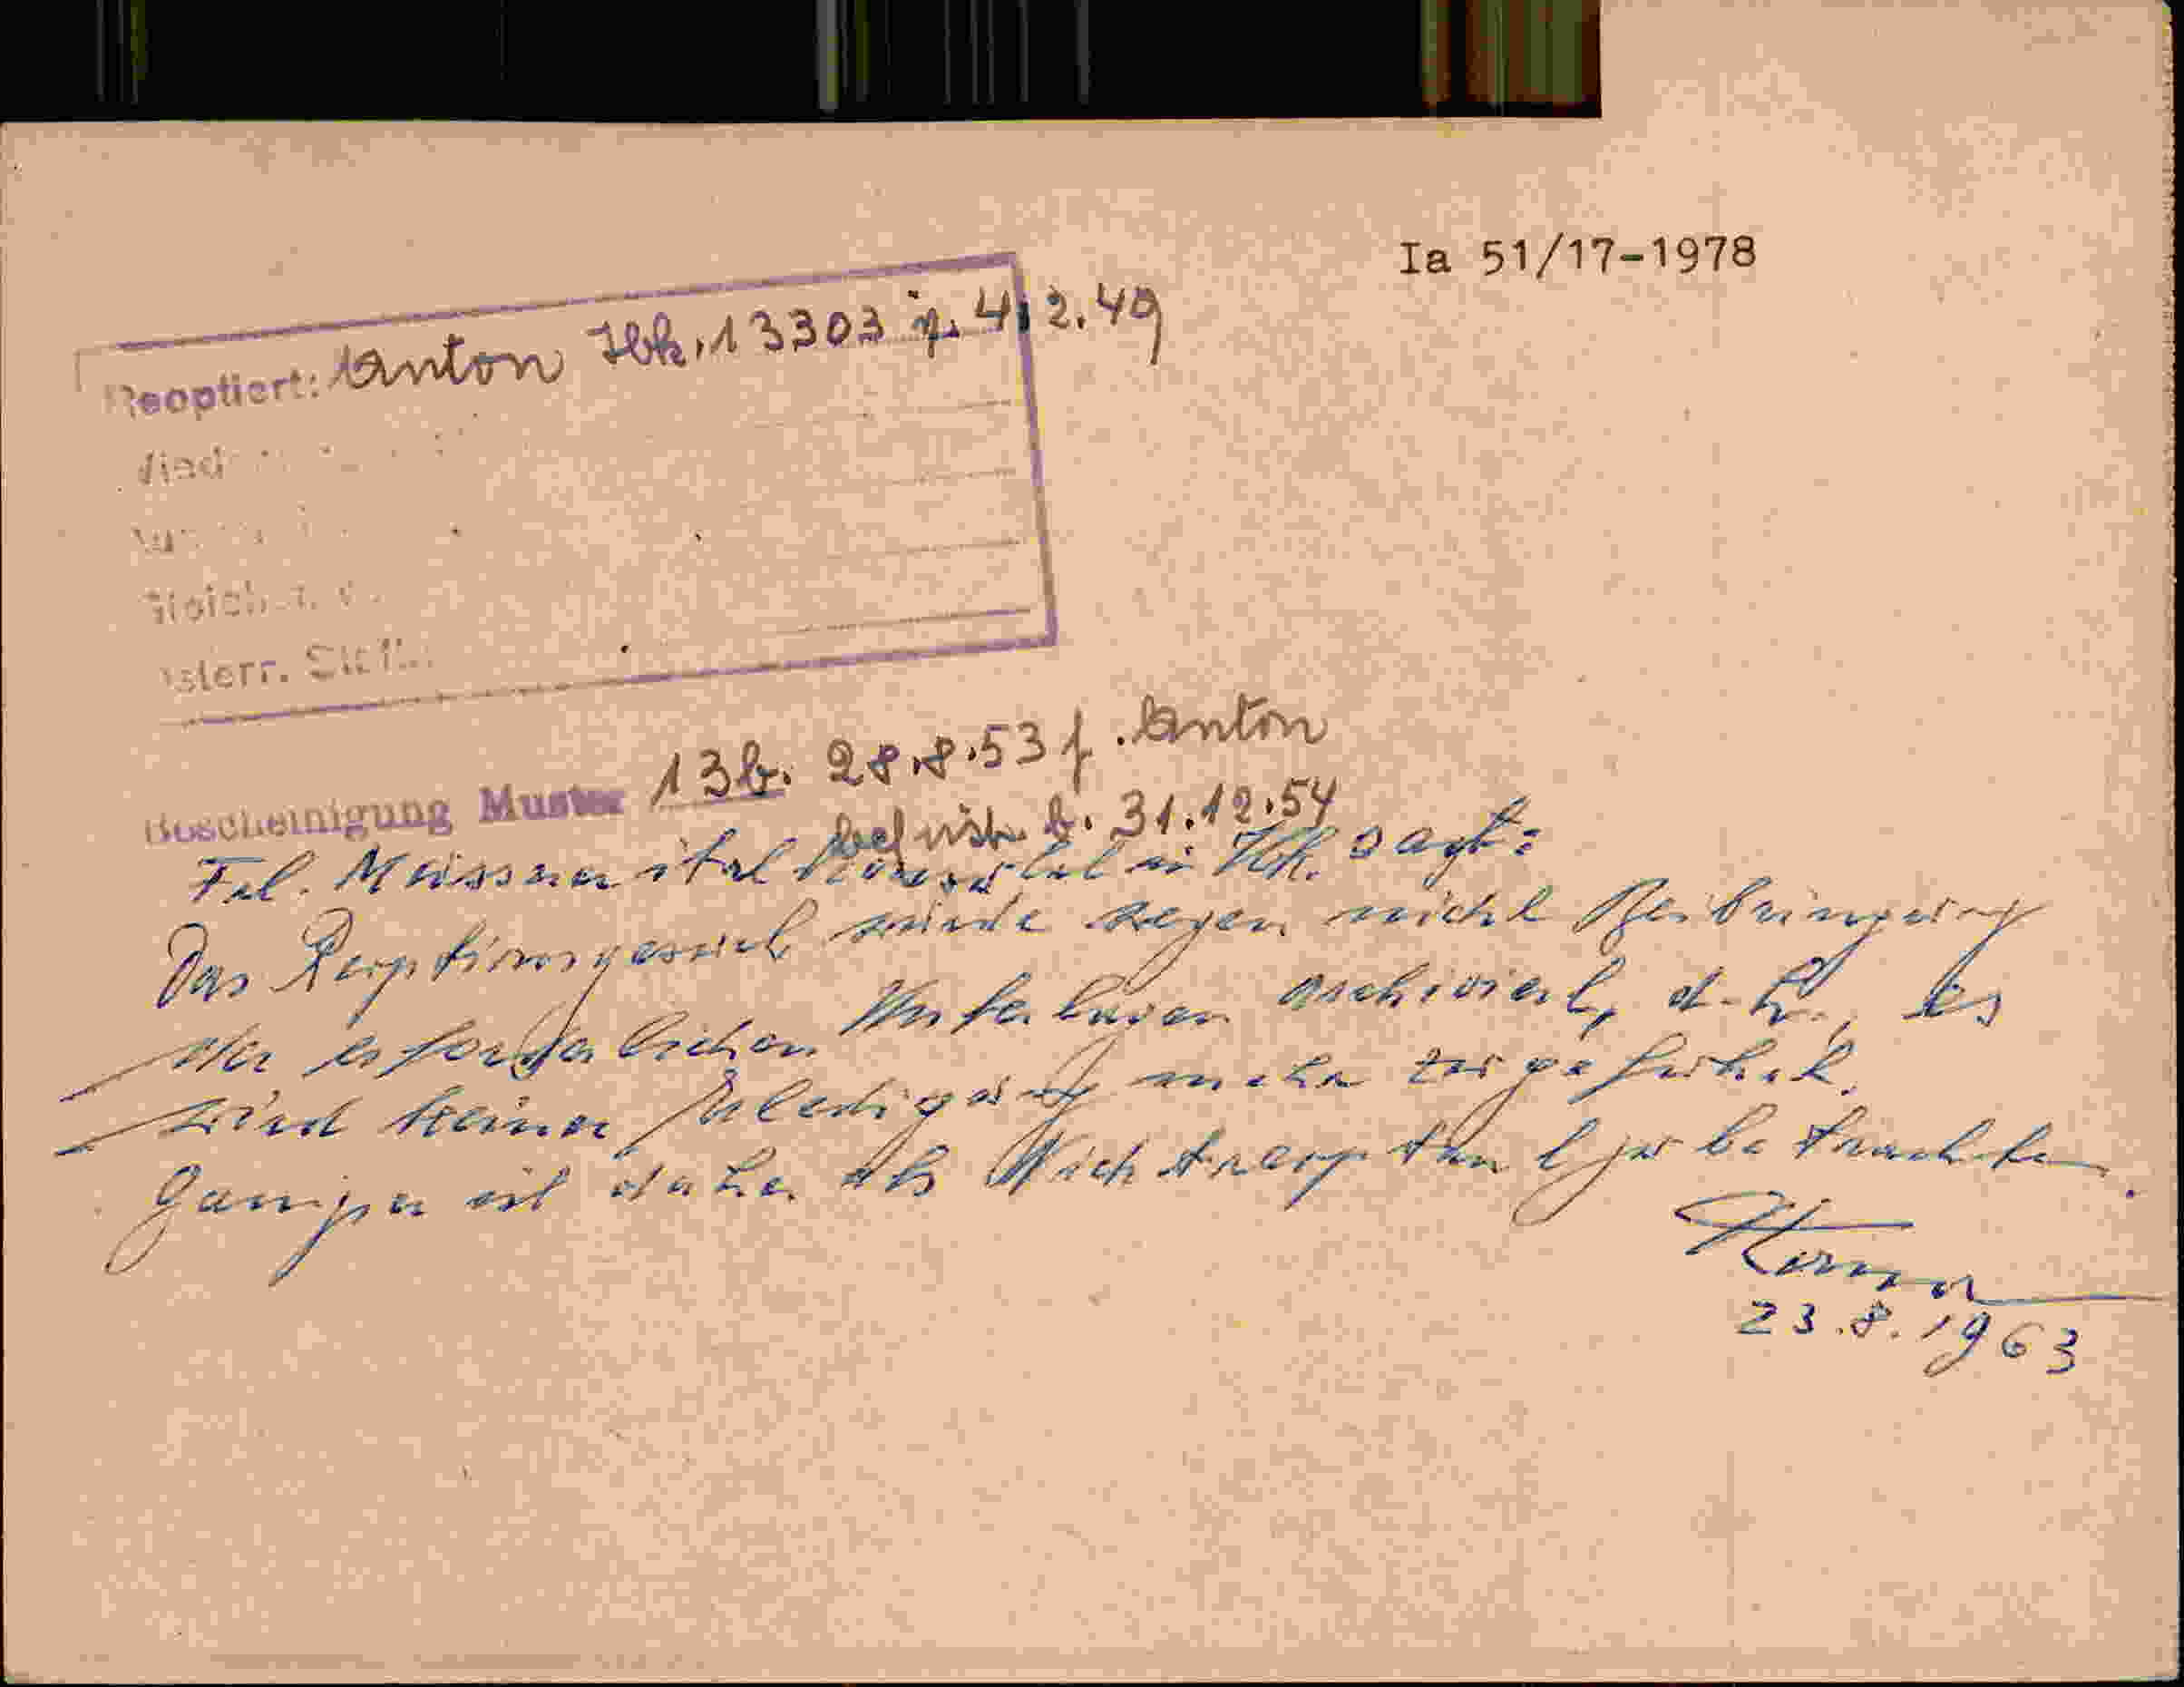 Ia 51/17-1978
Reoptiert: Anton Ibk. 13303 v. 4.2.49
österr. St
Bescheinigung Muster 13b. 28.8.53 f. Anton
befrist. b. 31.12.54
Frl. Meissner ital Konsulat in Ibk. sagt:
Das Reoptionsgesuch wurde wegen nicht Beibringung
der erforderlichen Unterlagen archiviert, d.h., es
wird keiner Erledigung mehr zugeführt.
Gamper ist daher als Nichtreoptant zu betrachten.
23.8.1963